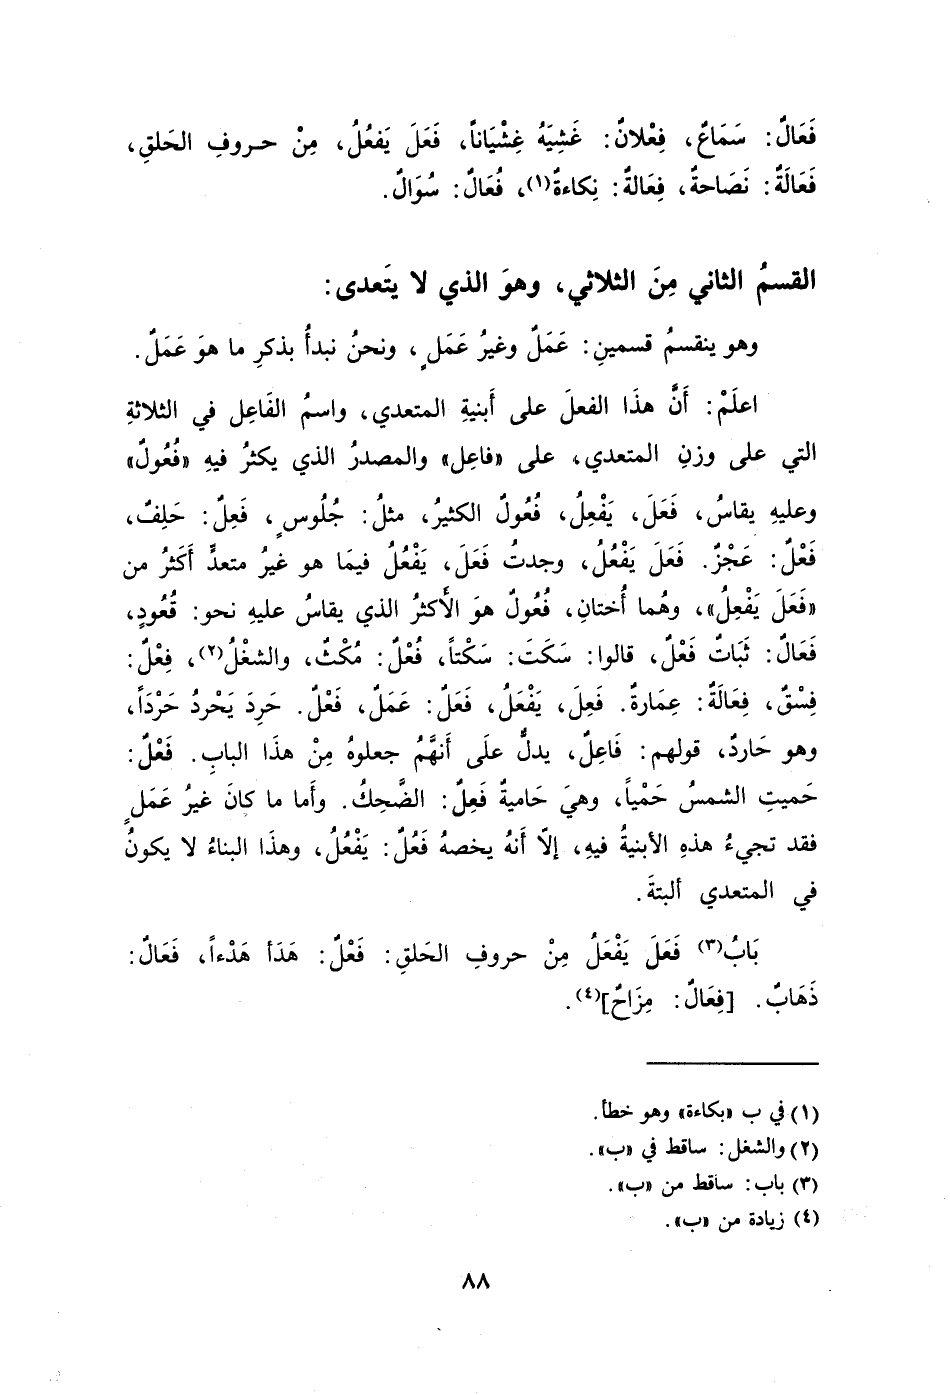 فَعَالٌ: سَمَاعٌ، فِعْلانٌ: غَشِيَهُ غِشْيَاناً، فَعَلَ يَفعُلُ، مِنْ حروفِ الحَلقِ،
فَعَالَةٌ: نَصَاحةٌ، فِعَالةٌ: نِكاءةٌ(١)، فُعَالٌ: سُوَالٌ.
القسمُ الثاني مِنَ الثلاثي، وهوَ الذي لا يتَعدى:
وهو ينقسمُ قسمينِ: عَمَلٌ وغيرُ عَمَلٍ، ونحنُ نبدأُ بذكرِ ما هوَ عَمَلٌ.
اعلَمْ: أَنَّ هذَا الفعلَ على أبنيةِ المتعدي، واسمُ الفَاعِل في الثلاثةِ
التي على وزنِ المتعدي، على «فاعِل» والمصدرُ الذي يكثرُ فيهِ «فُعُولٌ»
وعليهِ يقاسُ، فَعَلَ، يَفْعِلُ، فُعُولٌ الكثيرُ، مثلُ: جُلُوسٍ، فَعِلٌ: حَلِفٌ،
فَعْلٌ: عَجْزٌ. فَعَلَ يَفْعُلُ، وجدتُ فَعَلَ، يَفْعُلُ فيمَا هو غيرُ متعدٍّ أَكَثرُ من
«فَعَلَ يَفْعِلُ»، وهُما أُختانِ، فُعُولٌ هوَ الأَكثرُ الذي يقاسُ عليهِ نحو: قُعُودٍ،
فَعَالٌ: ثَبَاتٌ فَعْلٌ، قالوا: سَكَتَ: سَكْتاً، فُعْلٌ: مُكْثٌ، والشغْلُ(٢)، فِعْلٌ:
فِسْقٌ، فِعَالَةٌ: عِمَارةٌ. فَعِلَ، يَفْعَلُ، فَعَلٌ: عَمَلٌ، فَعْلٌ. حَرِدَ يَحْردُ حَرْدَاً،
وهو حَاردٌ، قولهم: فَاعِلٌ، يدلُّ علَى أَنهَّمُ جعلوهُ مِنْ هذَا البابِ. فَعْلٌ:
حَميتِ الشمسُ حَمْياً، وهيَ حَاميةٌ فَعِلٌ: الضَّحِكُ. وأَما ما كانَ غيرُ عَمَلٍ
فقد تجيءُ هذهِ الأبنيةُ فيهِ، إلاّ أَنهُ يخصهُ فَعُلٌ: يَفْعُلُ، وهذَا البناءُ لا يكونُ
في المتعدي ألبتةَ.
بَابُ(٣) فَعَلَ يَفْعَلُ مِنْ حروفِ الحَلقِ: فَعْلٌ: هَدَأ هَدْءاً، فَعَالٌ:
ذَهَابٌ. [فِعَالٌ: مِزَاحٌ](٤).
(١) في ب «بكاءة» وهو خطأ.
(٢) والشغل: ساقط في «ب».
(٣) باب: ساقط من «ب».
(٤) زيادة من «ب».
٨٨